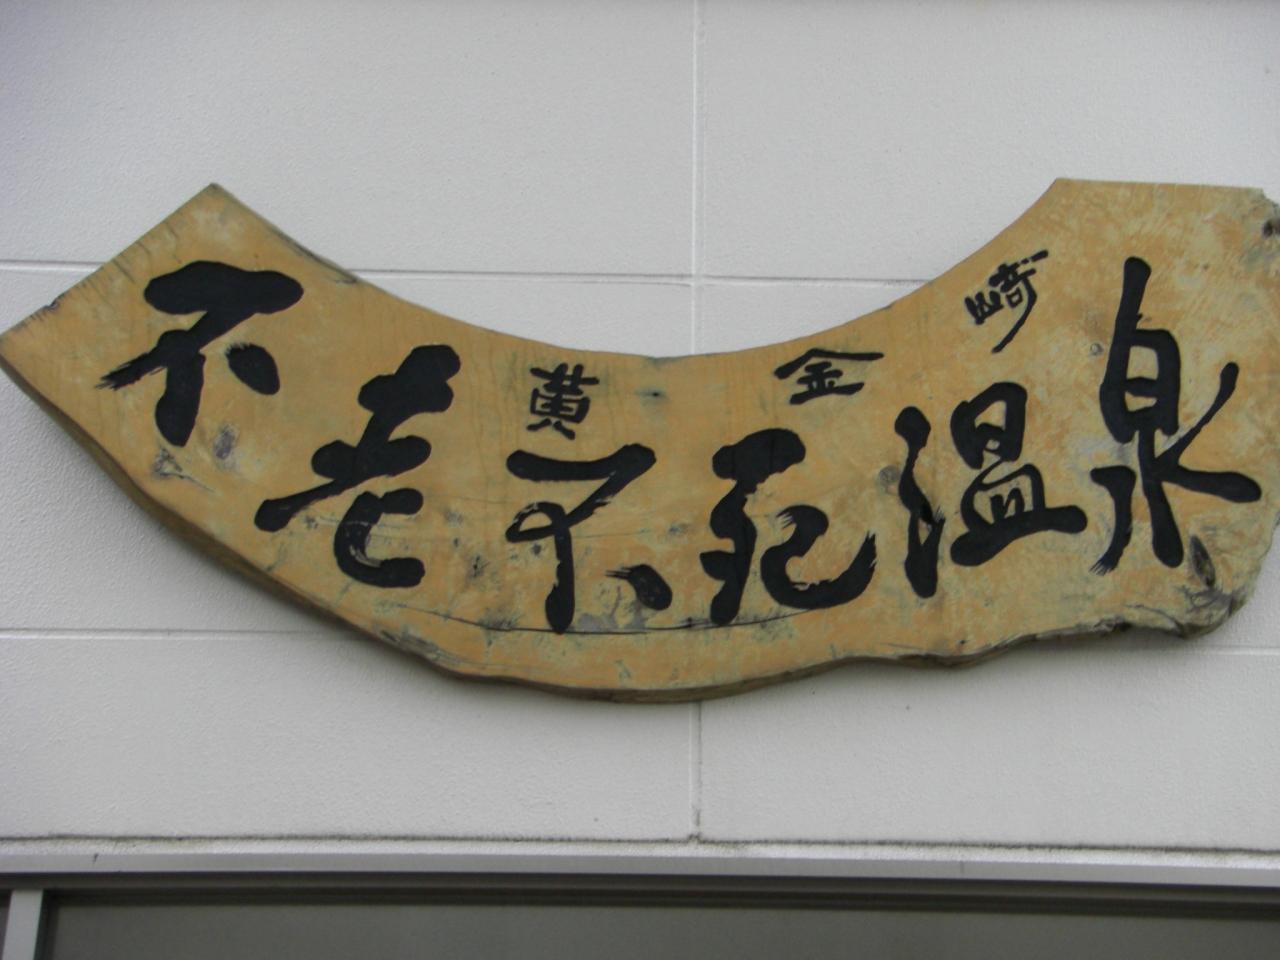 黄金崎
不老不死温泉